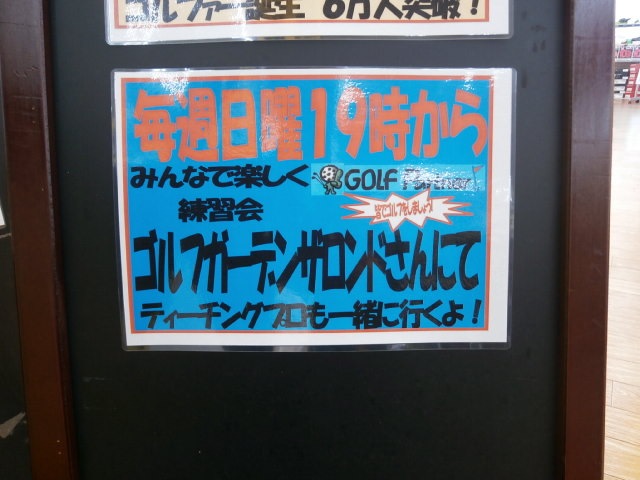 ゴルファー誕生 6万人突破!
毎週日曜19時から
みんなで楽しく GOLF Partner
練習会
皆でゴルフをしましょう♪
ゴルフガーデンザロンドさんにて
ティーチングプロも一緒に行くよ!